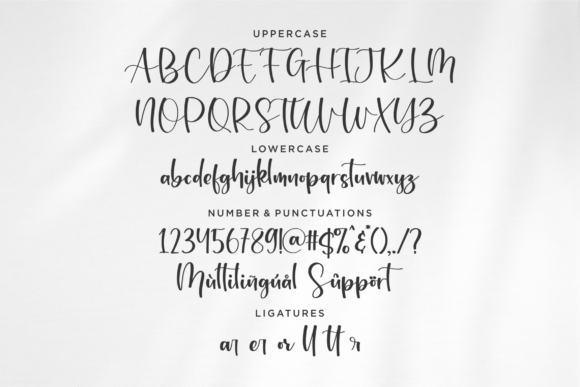 UPPERCASE
ABCDEFGHIJKLM
NOPQRSTUVWXYZ
LOWERCASE
abcdefghijklmnopqrstuvwxyz
NUMBER & PUNCTUATIONS
123456789!@#$%^&*(),./?
Mùltilin̈gúål Sûppört
LIGATURES
ar er or ll tt